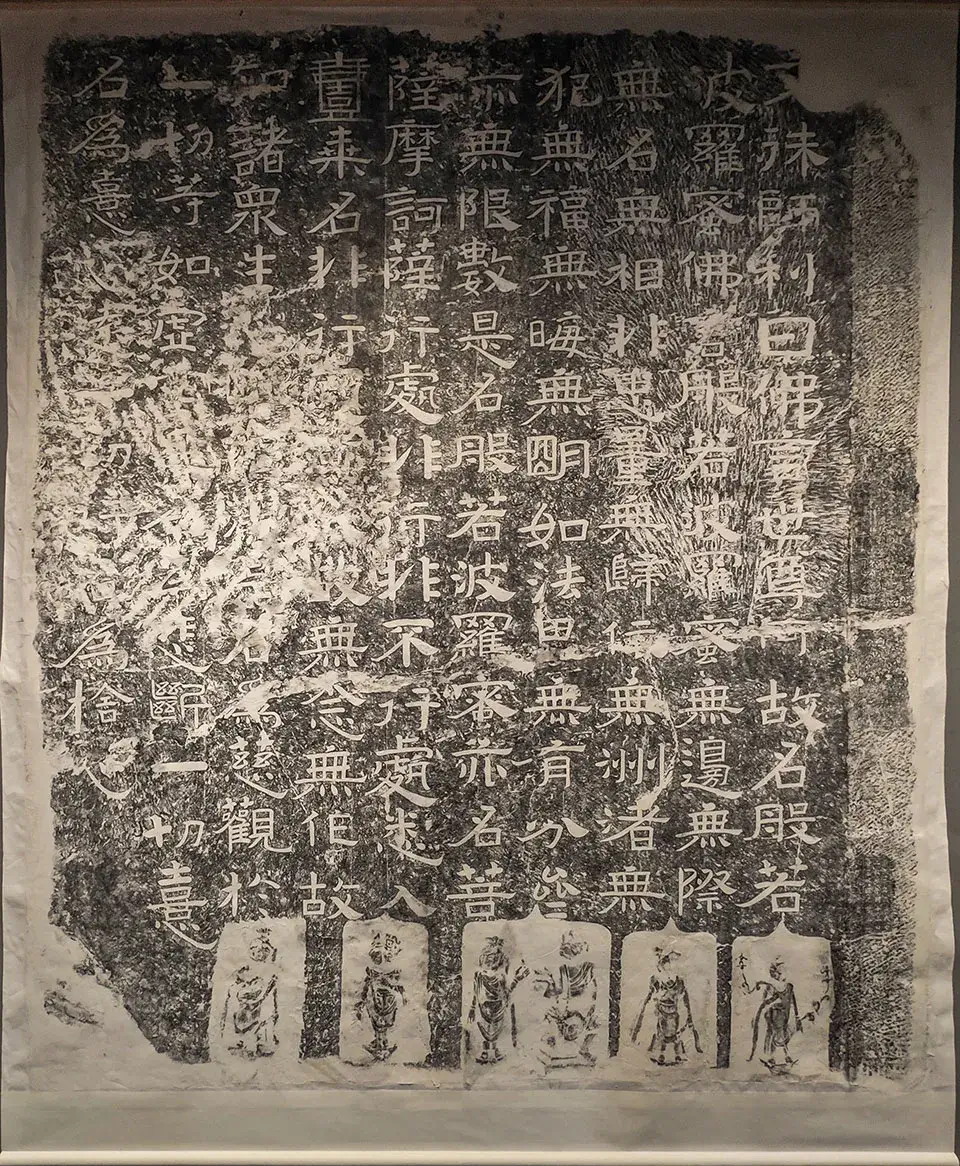 殊師利曰佛言世尊何故名般若
波羅蜜佛言般若波羅蜜無邊無際
無名無相非思量無歸依無洲渚無
犯無福無晦無明如法界無有分齊
亦無限數是名般若波羅蜜亦名菩
薩摩訶薩行處非行非不行處悉入
壹乘名非行故無念無作故
知諸眾生名為慈觀於
一切等如虛空斷一切憙
名為憙為捨心